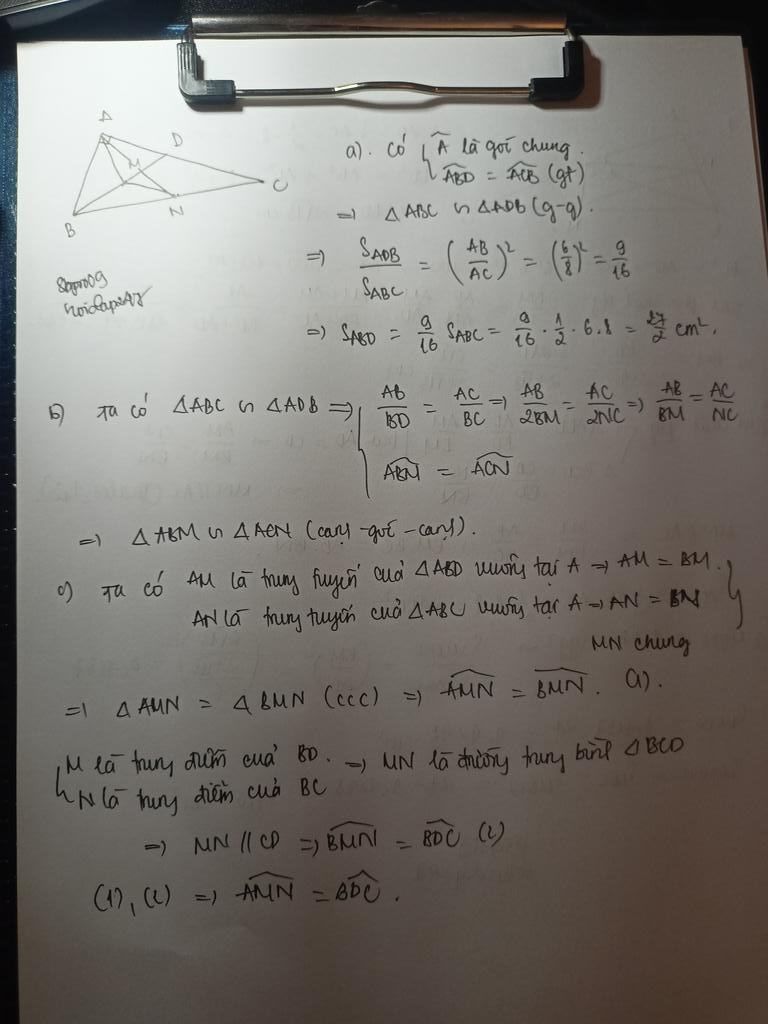 A
D
M
B
N
C
a). Có { Â là góc chung.
ABD̂ = ACB̂ (gt)
=> △ABC ∽ △ADB (g-g).
=> S_ADB / S_ABC = (AB/AC)² = (6/8)² = 9/16
=> S_ABD = 9/16 S_ABC = 9/16 . 1/2 . 6.8 = 27/2 cm².
b) Ta có △ABC ∽ △ADB => { AB/BD = AC/BC => AB/2BM = AC/2NC => AB/BM = AC/NC
ABM̂ = ACN̂
=> △ABM ∽ △ACN (cạnh-góc-cạnh).
c) Ta có AM là trung tuyến của △ABD vuông tại A => AM = BM.
AN là trung tuyến của △ABC vuông tại A => AN = BN }
MN chung
=> △AMN = △BMN (ccc) => AMN̂ = BMN̂. (1).
{ M là trung điểm của BD. => MN là đường trung bình △BCD
N là trung điểm của BC
=> MN // CD => BMN̂ = BDĈ (2)
(1), (2) => AMN̂ = BDĈ.